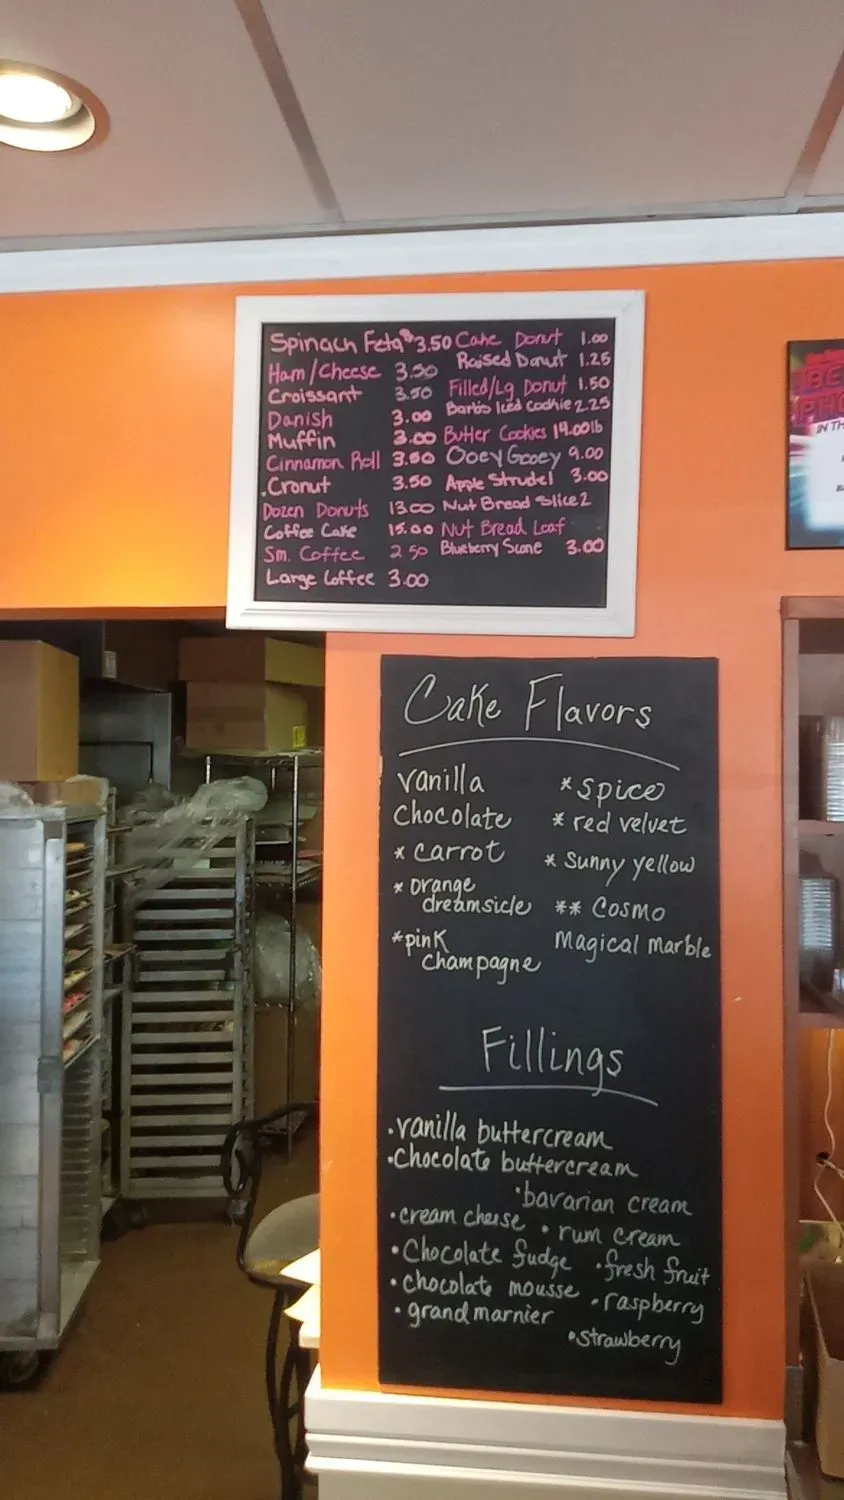 Spinach Feta $3.50
Ham/Cheese 3.50
Croissant 3.50
Danish 3.00
Muffin 3.00
Cinnamon Roll 3.50
.Cronut 3.50
Dozen Donuts 13.00
Coffee Cake 15.00
Sm. Coffee 2.50
Large Coffee 3.00
Cake Donut 1.00
Raised Donut 1.25
Filled/Lg. Donut 1.50
Barb's Iced Cookie 2.25
Butter Cookies 14.00lb
Ooey Gooey 9.00
Apple Strudel 3.00
Nut Bread Slice 2
Nut Bread Loaf
Blueberry Scone 3.00
Cake Flavors
vanilla
Chocolate
* carrot
* orange
dreamsicle
*pink
champagne
*spice
* red velvet
* Sunny yellow
** Cosmo
Magical marble
Fillings
•vanilla buttercream
•chocolate buttercream
•bavarian cream
•cream cheese
• rum cream
•Chocolate fudge
•fresh fruit
•chocolate mousse
•raspberry
•grand marnier
•strawberry
IN TH